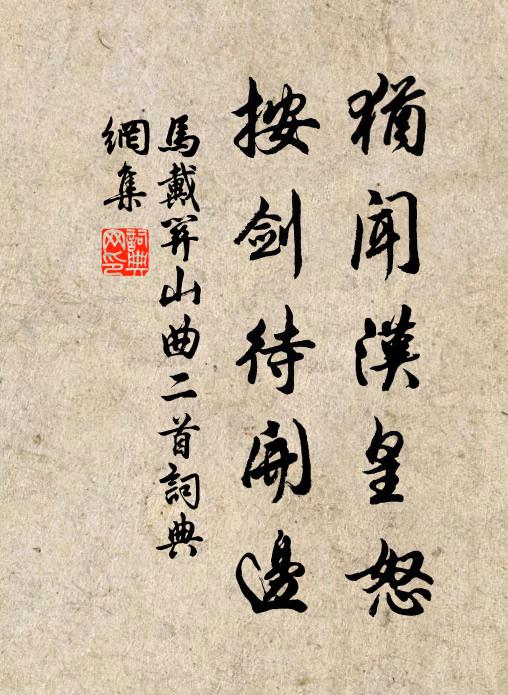 猶聞漢皇怒
按劍待開邊
馬戴関山曲二首詞典
網集
詞典網印